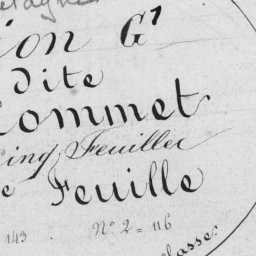 ion G¹
dite
Commet
Cinq Feuilles
e Feuille
143 . N° 2 = 116
classe.